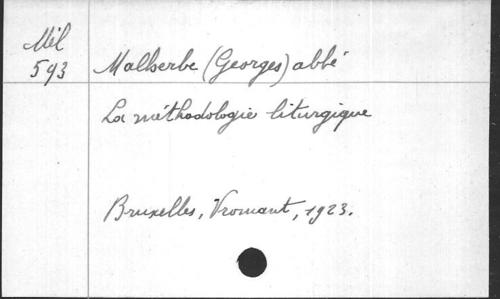 Mél
593
Malherbe (Georges) abbé
La méthodologie liturgique
Bruxelles, Vromant, 1923.